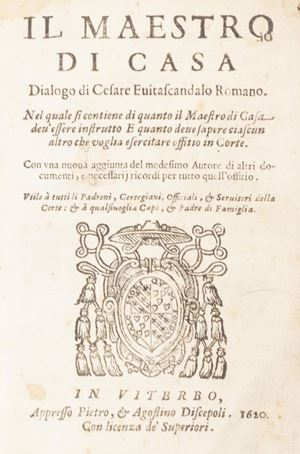 IL MAESTRO
DI CASA
Dialogo di Cesare Euitascandalo Romano.
Nel quale si contiene di quanto il Maestro di Casa
deu'essere instrutto E quanto deue sapere ciascun
altro che voglia esercitare offitio in Corte.
Con vna nuoua aggiunta del medesimo Autore di altri do-
cumenti, e necessarij ricordi per tutto quell'offitio.
Vtile à tutti li Padroni, Cortegiani, Officiali, & Seruitori della
Corte: & à qualsiuoglia Capo, & Padre di Famiglia.
IN VITERBO,
Appresso Pietro, & Agostino Discepoli. 1620.
Con licenza de' Superiori.